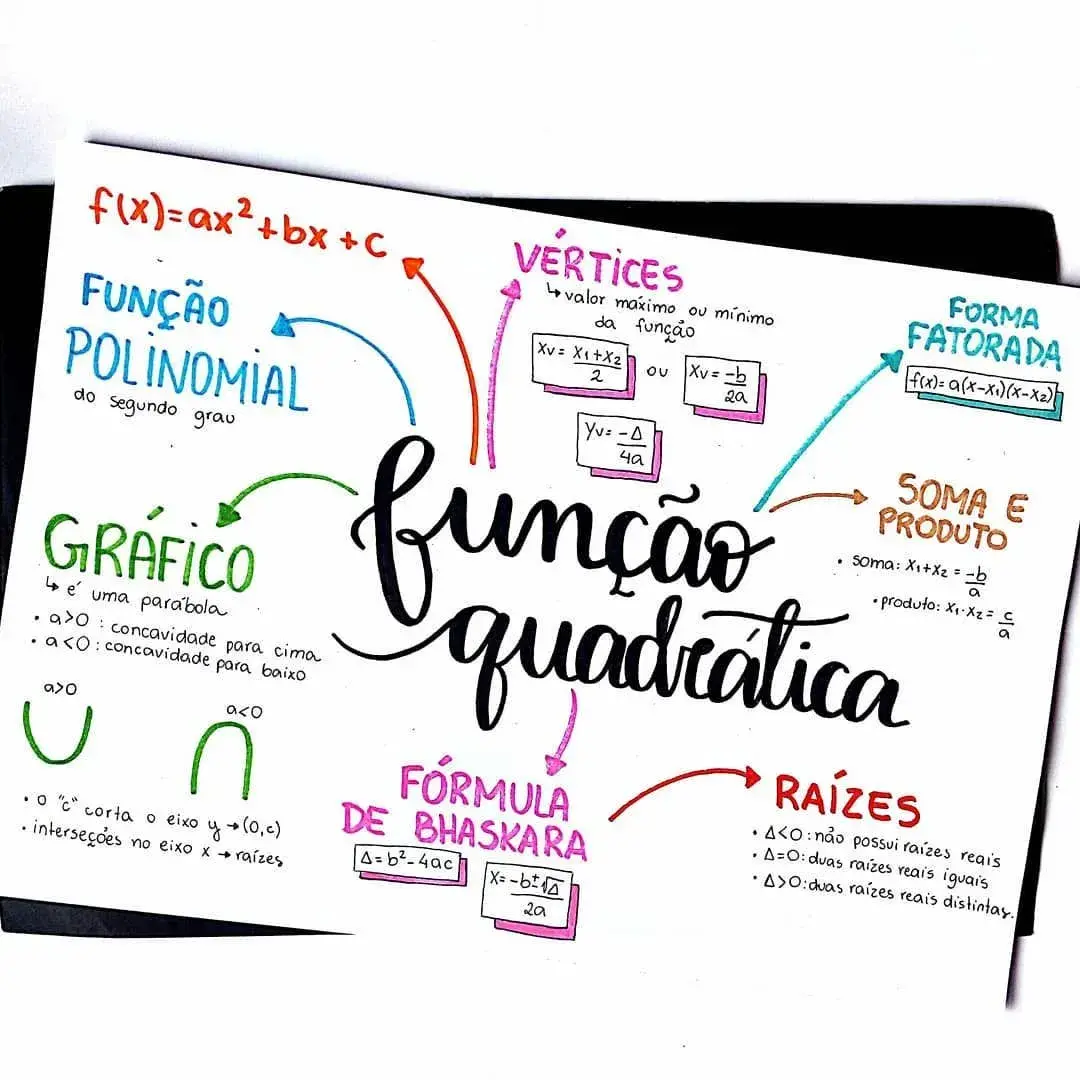 f(x)=ax²+bx+c
FUNÇÃO
POLINOMIAL
do segundo grau
VÉRTICES
↳ valor máximo ou mínimo
da função
Xv = X₁+X₂/2 ou Xv = -b/2a
Yv = -Δ/4a
FORMA
FATORADA
f(x)= a(x-x₁)(x-x₂)
SOMA E
PRODUTO
• soma: X₁+X₂ = -b/a
• produto: X₁·X₂ = c/a
função
quadrática
GRÁFICO
↳ é uma parábola
• a>0 : concavidade para cima
• a<0 : concavidade para baixo
a>0
a<0
• o "c" corta o eixo y → (0,c)
• interseções no eixo x → raízes
FÓRMULA
DE BHASKARA
Δ= b²-4ac
X= -b±√Δ/2a
RAÍZES
• Δ<0: não possui raízes reais
• Δ=0: duas raízes reais iguais
• Δ>0: duas raízes reais distintas.